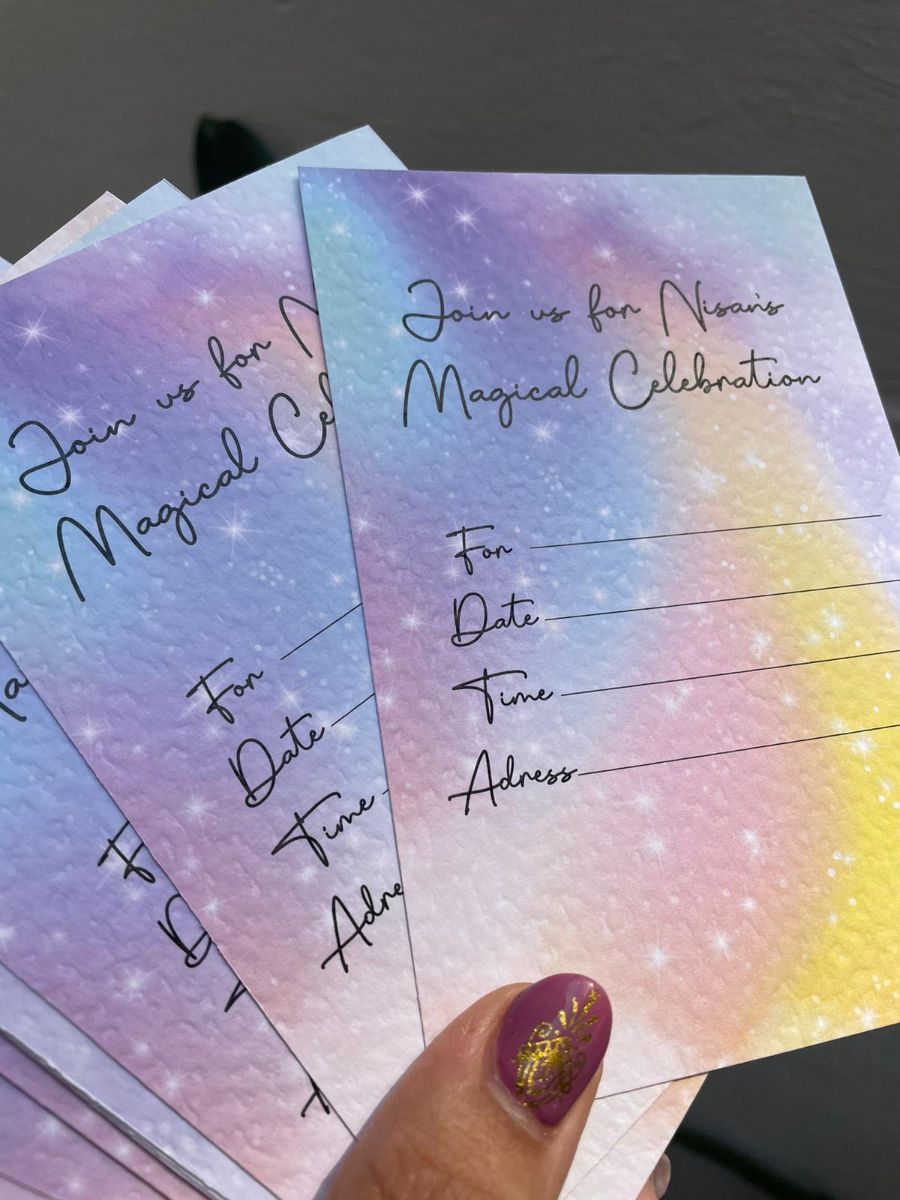 Join us for Nisan's
Magical Celebration
For
Date
Time
Adress
Join us for N
Magical Cel
For
Date
Time
Adre
F
D
T